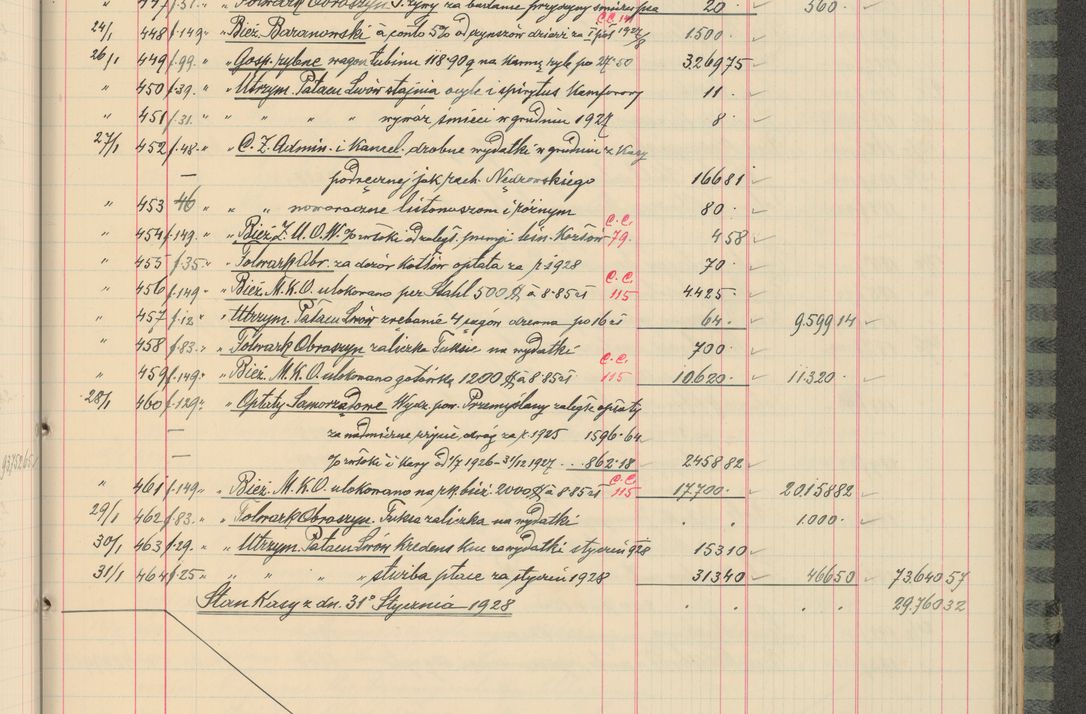 " 447 f.31. " " Folwark Obroszyn 20.- 560.-
C.C. 141
24/1 448 f.149 " " Bież. Baranowski à conto 5% od czynszów dzierż za I pół 1927/8 1500.-
26/1 449 f.99. " " Gosp. rybne wagon łubinu 118.90 q na karmę ryb po 27.50 3.269 75
" 450 f.39. " " Utrzym. Pałacu Lwów stajnia i spirytus kamforowy 11.-
" 451 f.31. " " " " " wywóz śmieci w grudniu 1927 8.-
27/1 452 f.48. " " C. Z. Admin. i Kancel. drobne wydatki w grudniu z Kasy
— podręcznej jak rach. Nędzowskiego 166 81
" 453 46 " " " noworoczne listonoszom i różnym 80.-
C.C.
" 454 f.149. " " Bież Z. U. O. W. zwłoki od zaległ. premji 79. 4 58
" 455 f.35 " " Folwark Obr. za dozór kotłów opłata za r. 1928 70.-
C.C.
" 456 f.149 " " Bież. M.K.O. ulokowano per Stahl 500 $ à 8.85 zł 115 4.425.-
" 457 f.12 " " Utrzym. Pałacu Lwów zrębanie 4 sągów drzewa po 16 zł 64.- 9.599 14
" 458 f.83. " " Folwark Obroszyn zaliczka Fuksie na wydatki 700.-
C.C.
" 459 f.149. " " Bież. M.K.O. ulokowano gotówką 1200 $ à 8.85 zł 115 10.620.- 11.320.-
28/1 460 f.129 " " Opłaty Samorządowe Wydz. pow. Przemyślany zaległe opłaty
— za nadmierne dróg za r. 1925 1596.64
— zwłoki i kary od 1/7 1926 – 31/12 1927 . . 862.18 2458 82
C.C.
" 461 f.149 " " Bież. M.K.O. ulokowano na rk. bież. 2000 $ à 8.85 zł 115 17.700.- 20.158 82
29/1 462 f.83. " " Folwark Obroszyn. Fuksa zaliczka na wydatki . . 1.000.-
30/1 463 f.29. " " Utrzym. Pałacu Lwów Kredens Kuc za wydatki styczeń 928 153 10
31/1 464 f.25 " " " " " służba płace za styczeń 1928 313 40 466 50 73.640 57
Stan Kasy z dn. 31° Stycznia 1928 . . . . 29.760 32